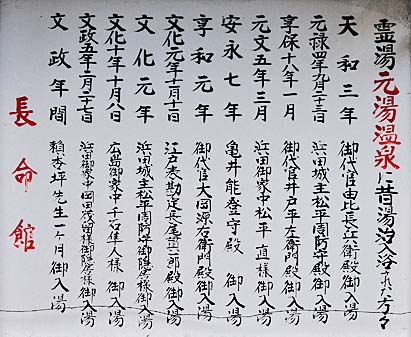 霊湯元湯温泉に昔湯治入浴された方々
天和三年 御代官由比長兵衛殿御入湯
元禄四年九月二十三日 浜田城主松平周防守御入湯
享保十八年一月 御代官井戸平左衛門殿御入湯
元文五年三月 浜田御家中松平直様御入湯
安永七年 亀井能登守殿御入湯
享和元年 御代官大岡源右衛門殿御入湯
文化元年十月十一日 江戸表勘定長尾 殿御入湯
文化元年 浜田城主松平周防守御隠居様御入湯
文化十年十月八日 広島御家中千石隼人様御入湯
文政五年二月二十七日 浜田御家中岡田茂留様御隠居様御入湯
文政年間 頼杏坪先生一ヶ月御入湯
長命館